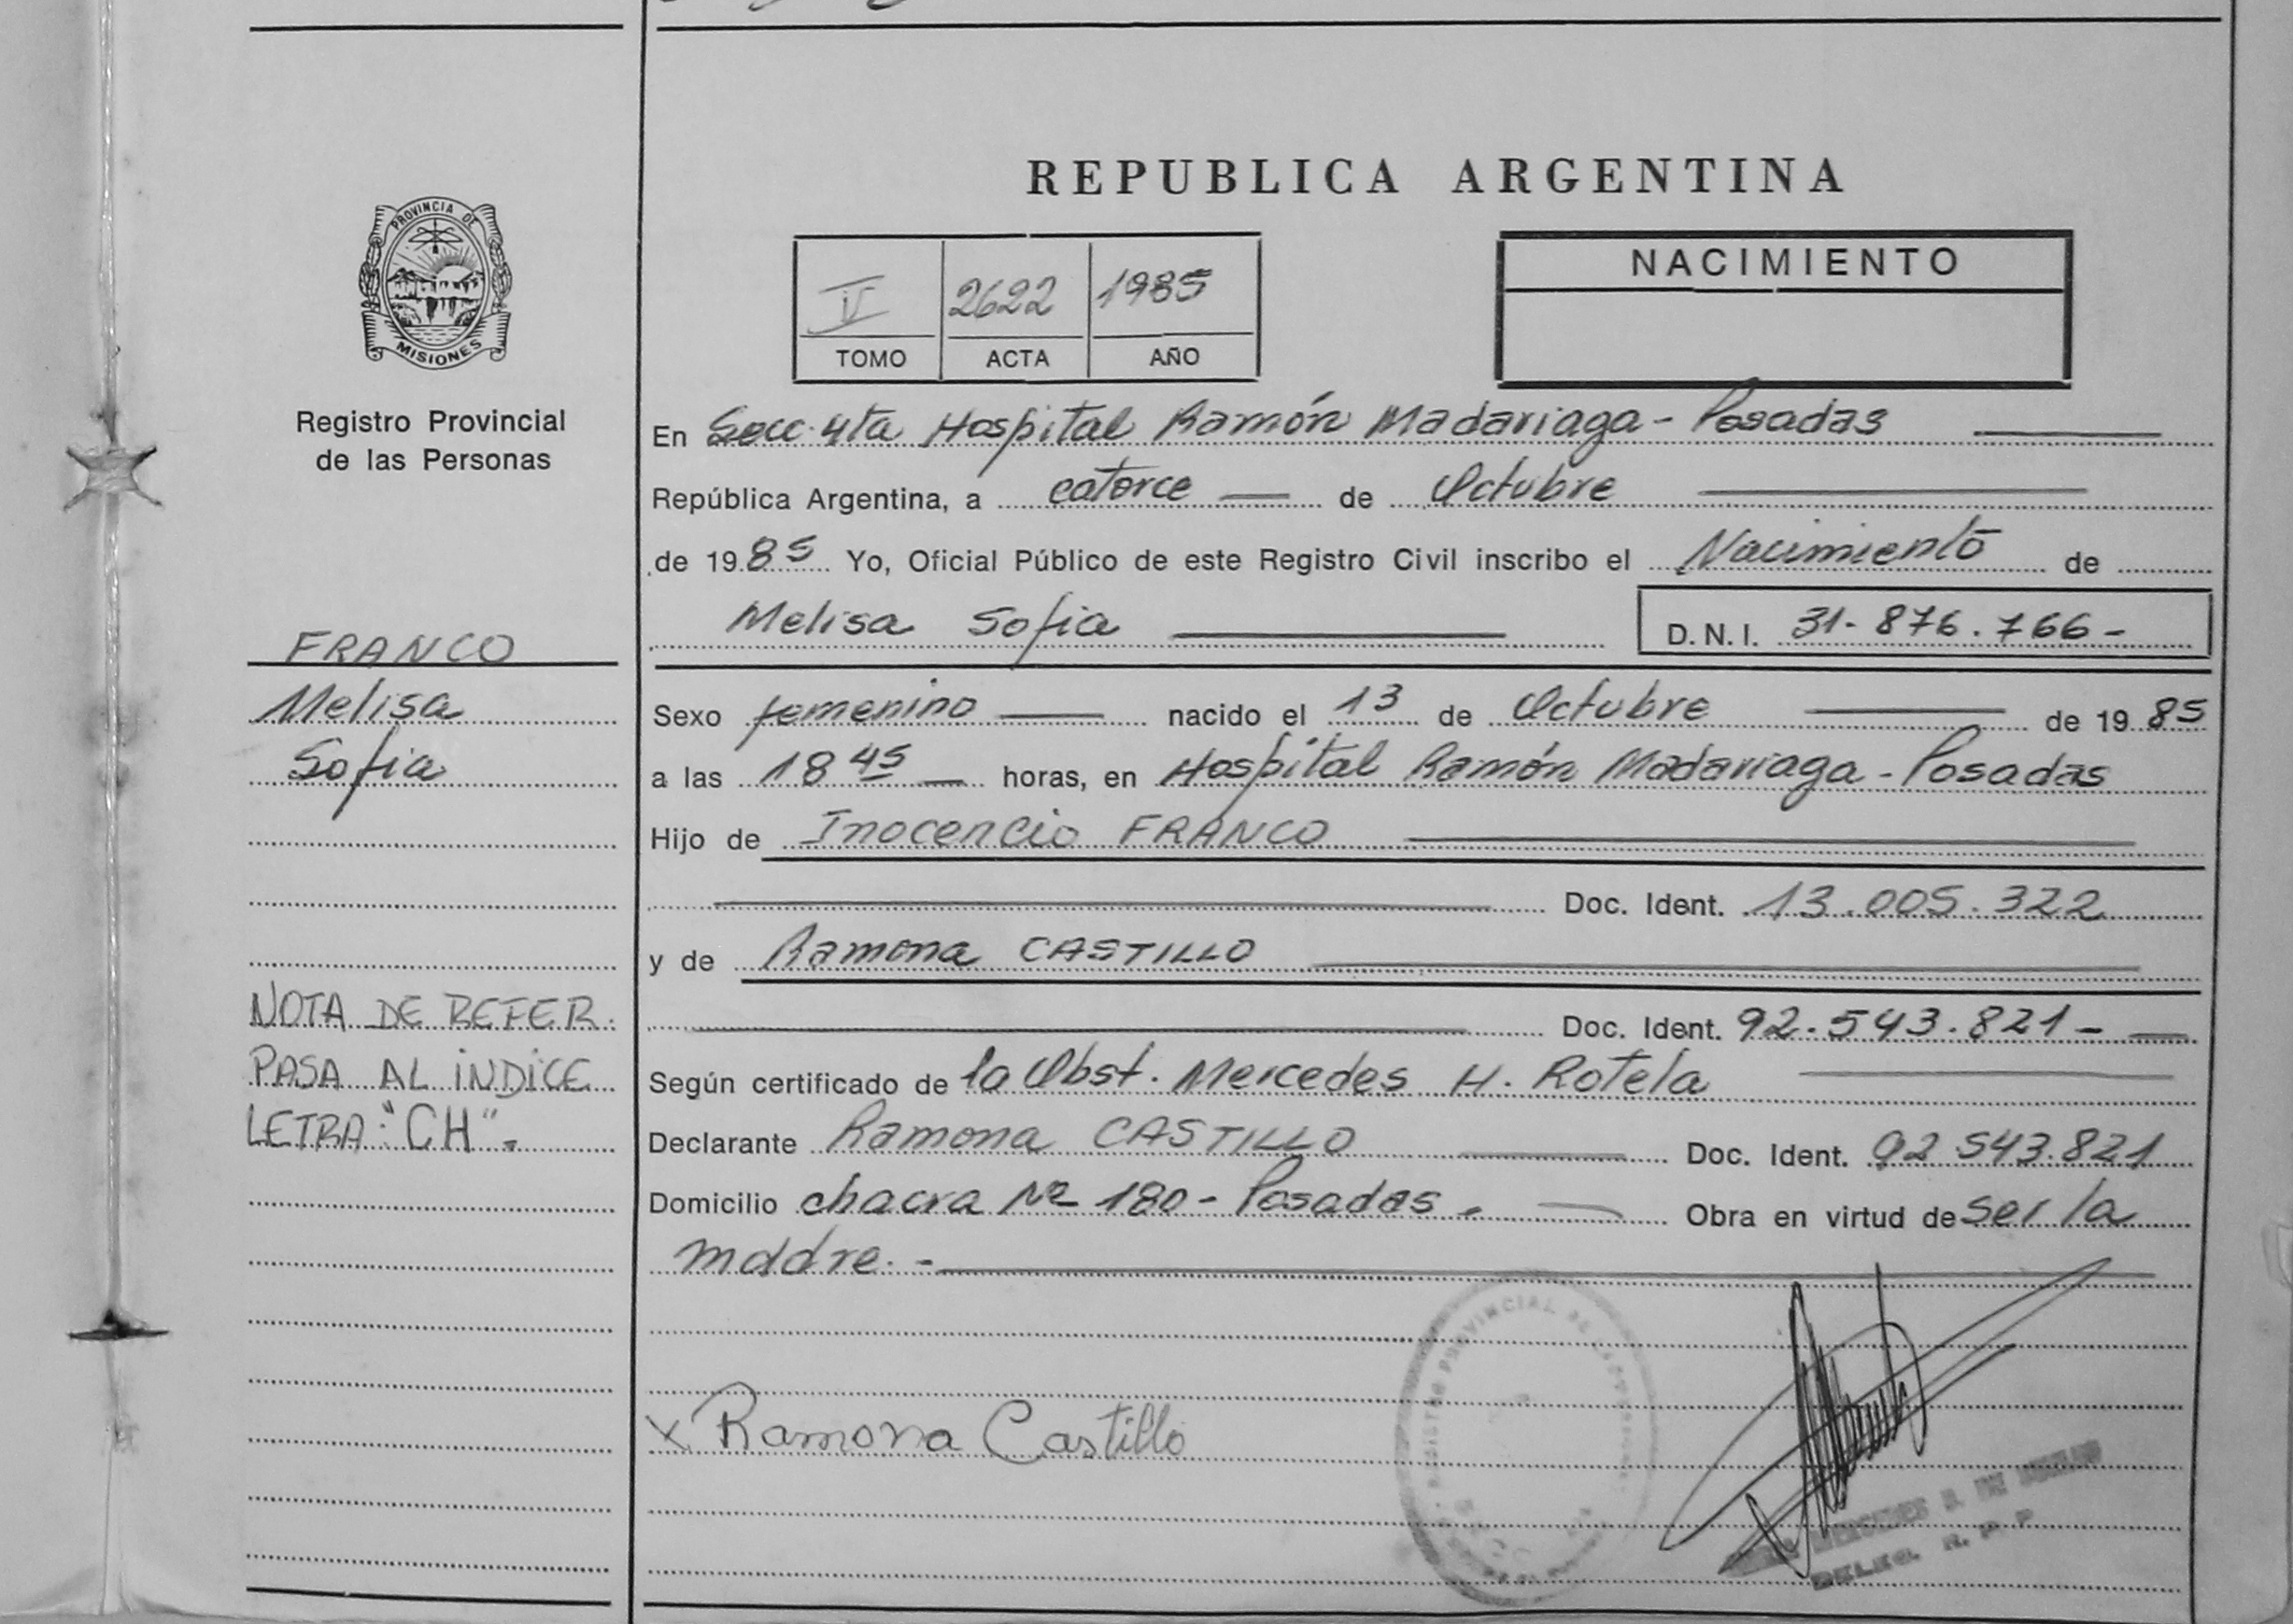 REPUBLICA ARGENTINA
PROVINCIA DE
MISIONES
Registro Provincial
de las Personas
2622 1985
TOMO ACTA AÑO
NACIMIENTO
En Secc. 4ta Hospital Ramón Madariaga - Posadas
República Argentina, a catorce de Octubre
de 1985 Yo, Oficial Público de este Registro Civil inscribo el Nacimiento de
Melisa Sofia D.N.I. 31-876.766-
FRANCO
Melisa
Sofia
Sexo femenino nacido el 13 de Octubre de 1985
a las 18 45 horas, en Hospital Ramón Madariaga - Posadas
Hijo de Inocencio FRANCO
Doc. Ident. 13.005.322
y de Ramona CASTILLO
Doc. Ident. 92.543.821-
NOTA DE REFER.
PASA AL INDICE
LETRA "CH".
Según certificado de la Obst. Mercedes H. Rotela
Declarante Ramona CASTILLO Doc. Ident. 92 543.821
Domicilio chacra Nº 180 - Posadas. Obra en virtud de ser la
madre. -
x Ramona Castillo
REGISTRO PROVINCIAL DE LAS PERSONAS
MERCEDES
DELEG. R. P. P.